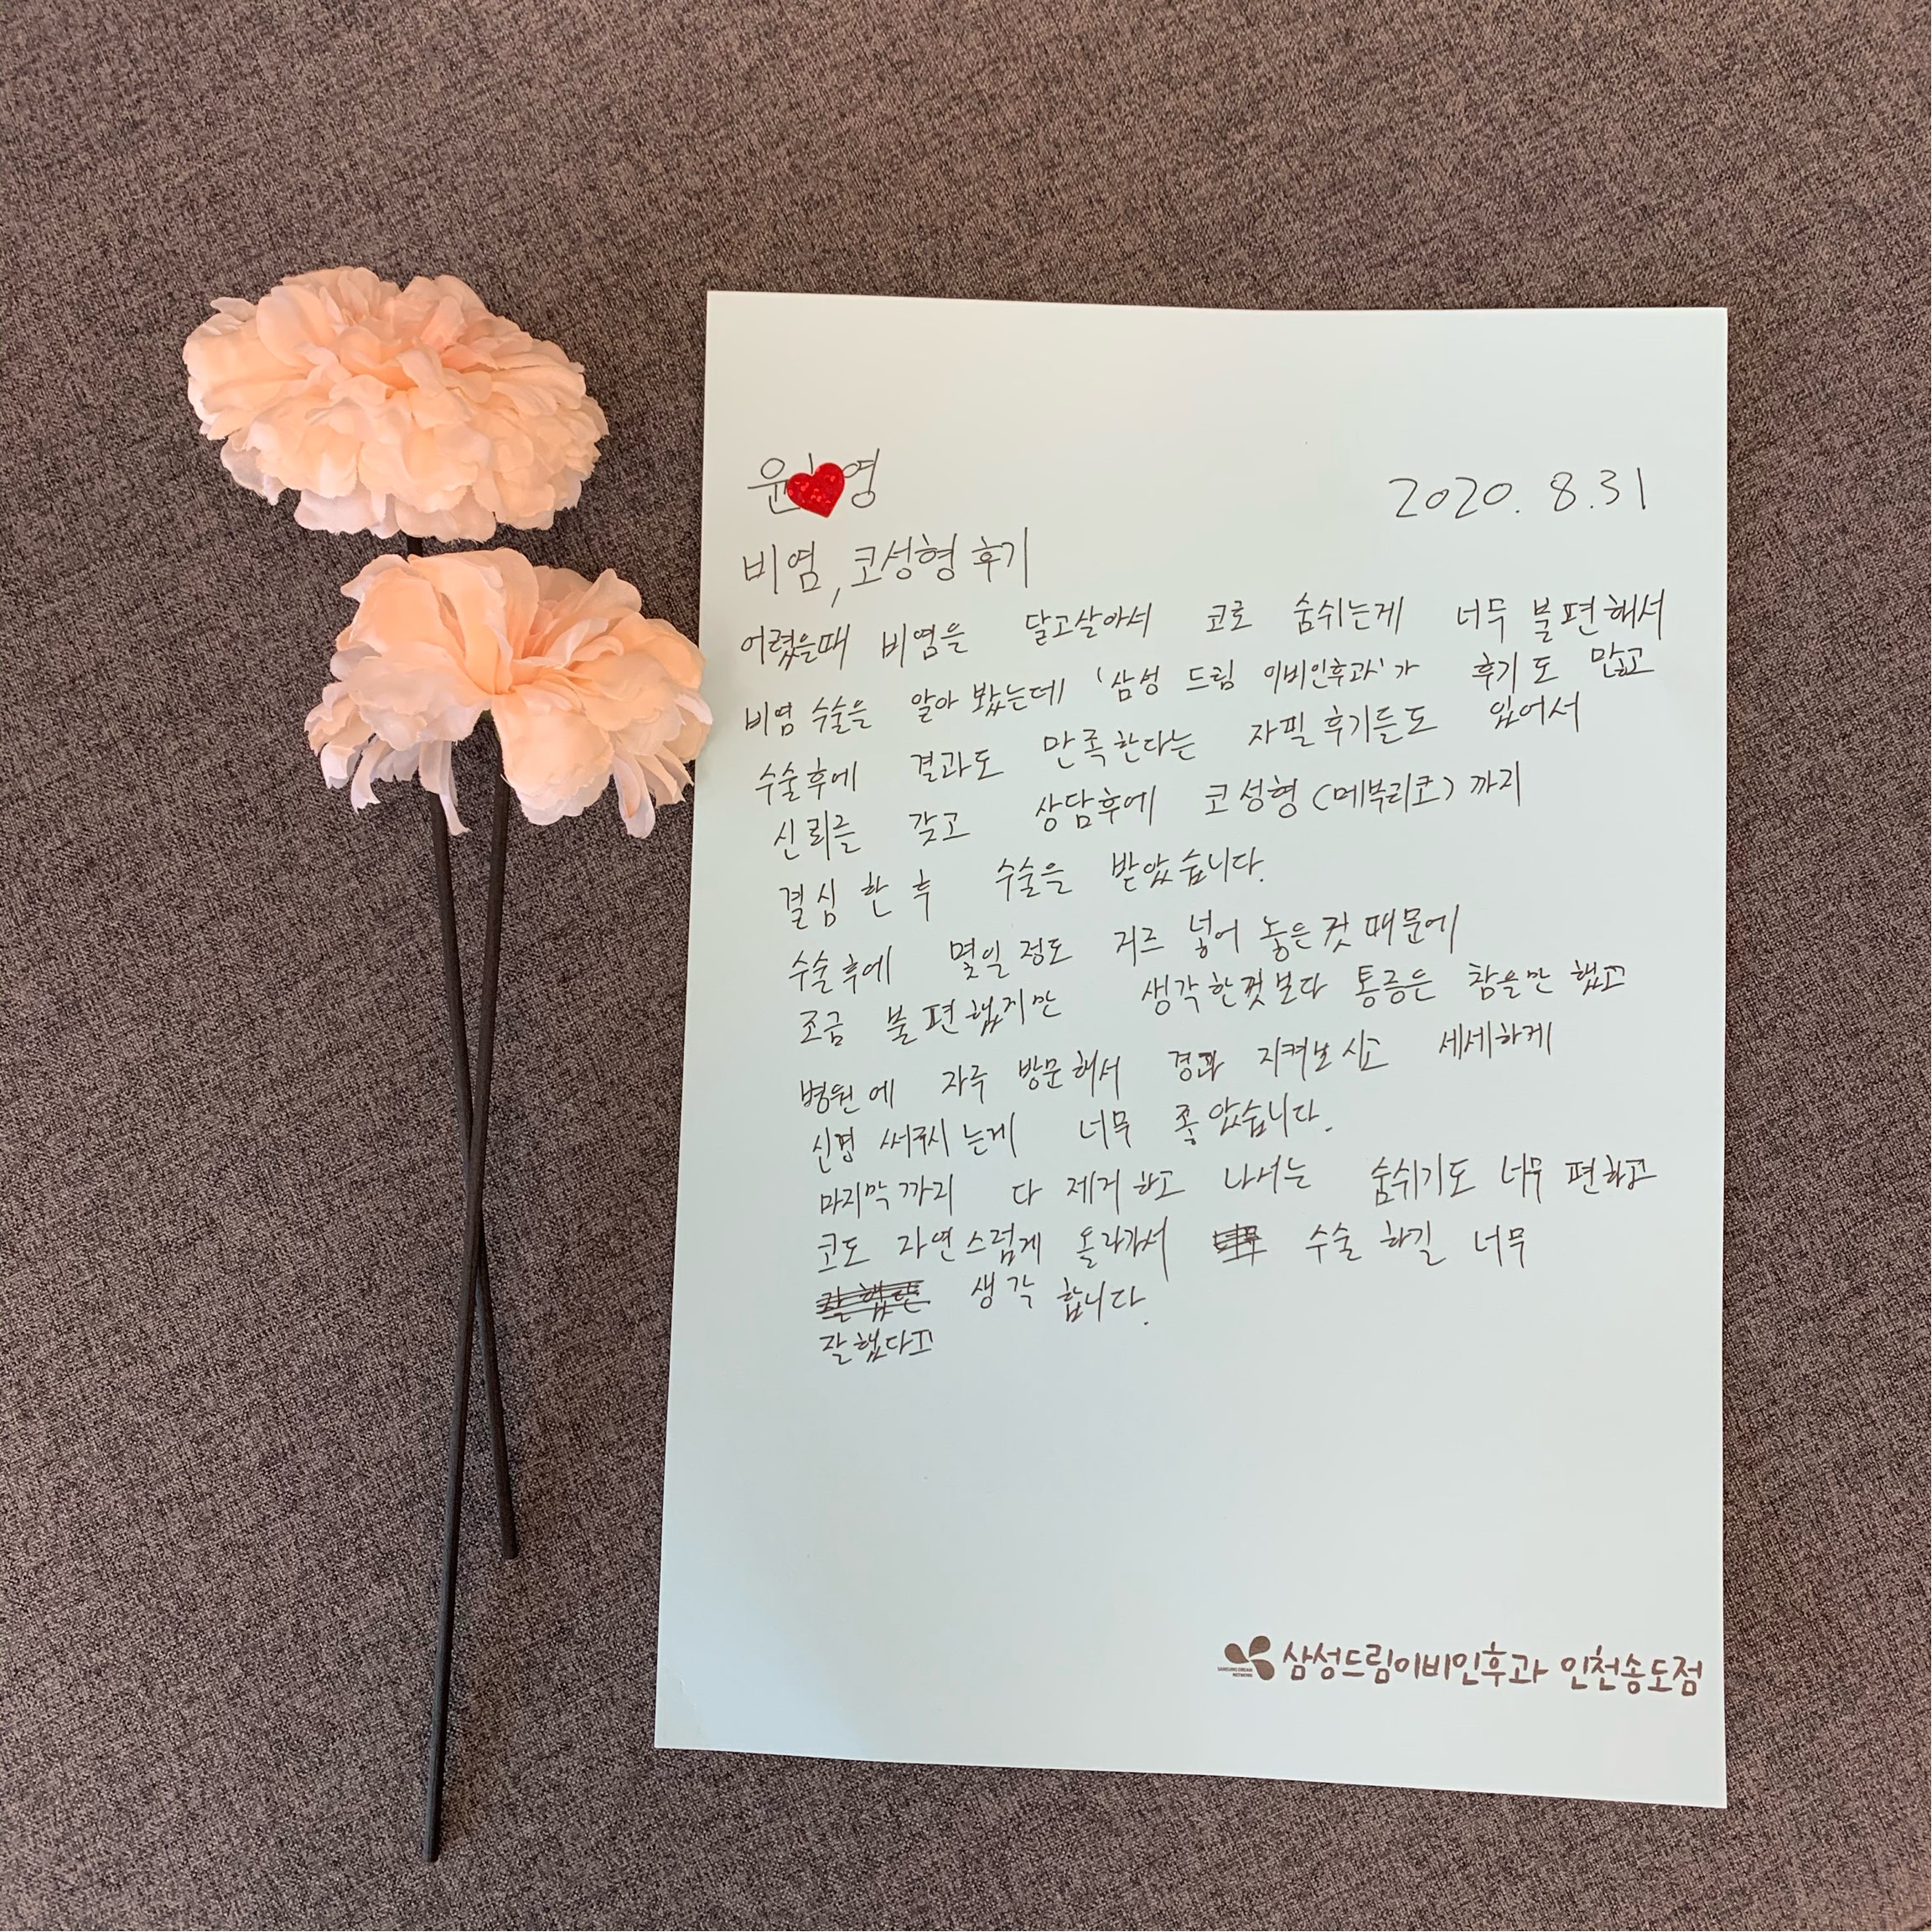 윤 영
2020. 8.31
비염, 코성형 후기
어렸을때 비염을 달고살아서 코로 숨쉬는게 너무 불편해서
비염 수술을 알아 봤는데 '삼성 드림 이비인후과'가 후기도 많고
수술후에 결과도 만족한다는 자필 후기들도 있어서
신뢰를 갖고 상담후에 코성형 (메부리코) 까지
결심 한 후 수술을 받았습니다.
수술후에 몇일정도 거즈 넣어 놓은것 때문에
조금 불편했지만 생각한것보다 통증은 참을만 했고
병원에 자주 방문해서 경과 지켜보시고 세세하게
신경 써주시는게 너무 좋았습니다.
마지막까지 다 제거하고 나서는 숨쉬기도 너무 편하고
코도 자연스럽게 올라가서 수술 하길 너무
생각 합니다.
잘했다고
SAMSUNG DREAM
NETWORK
삼성드림이비인후과 인천송도점